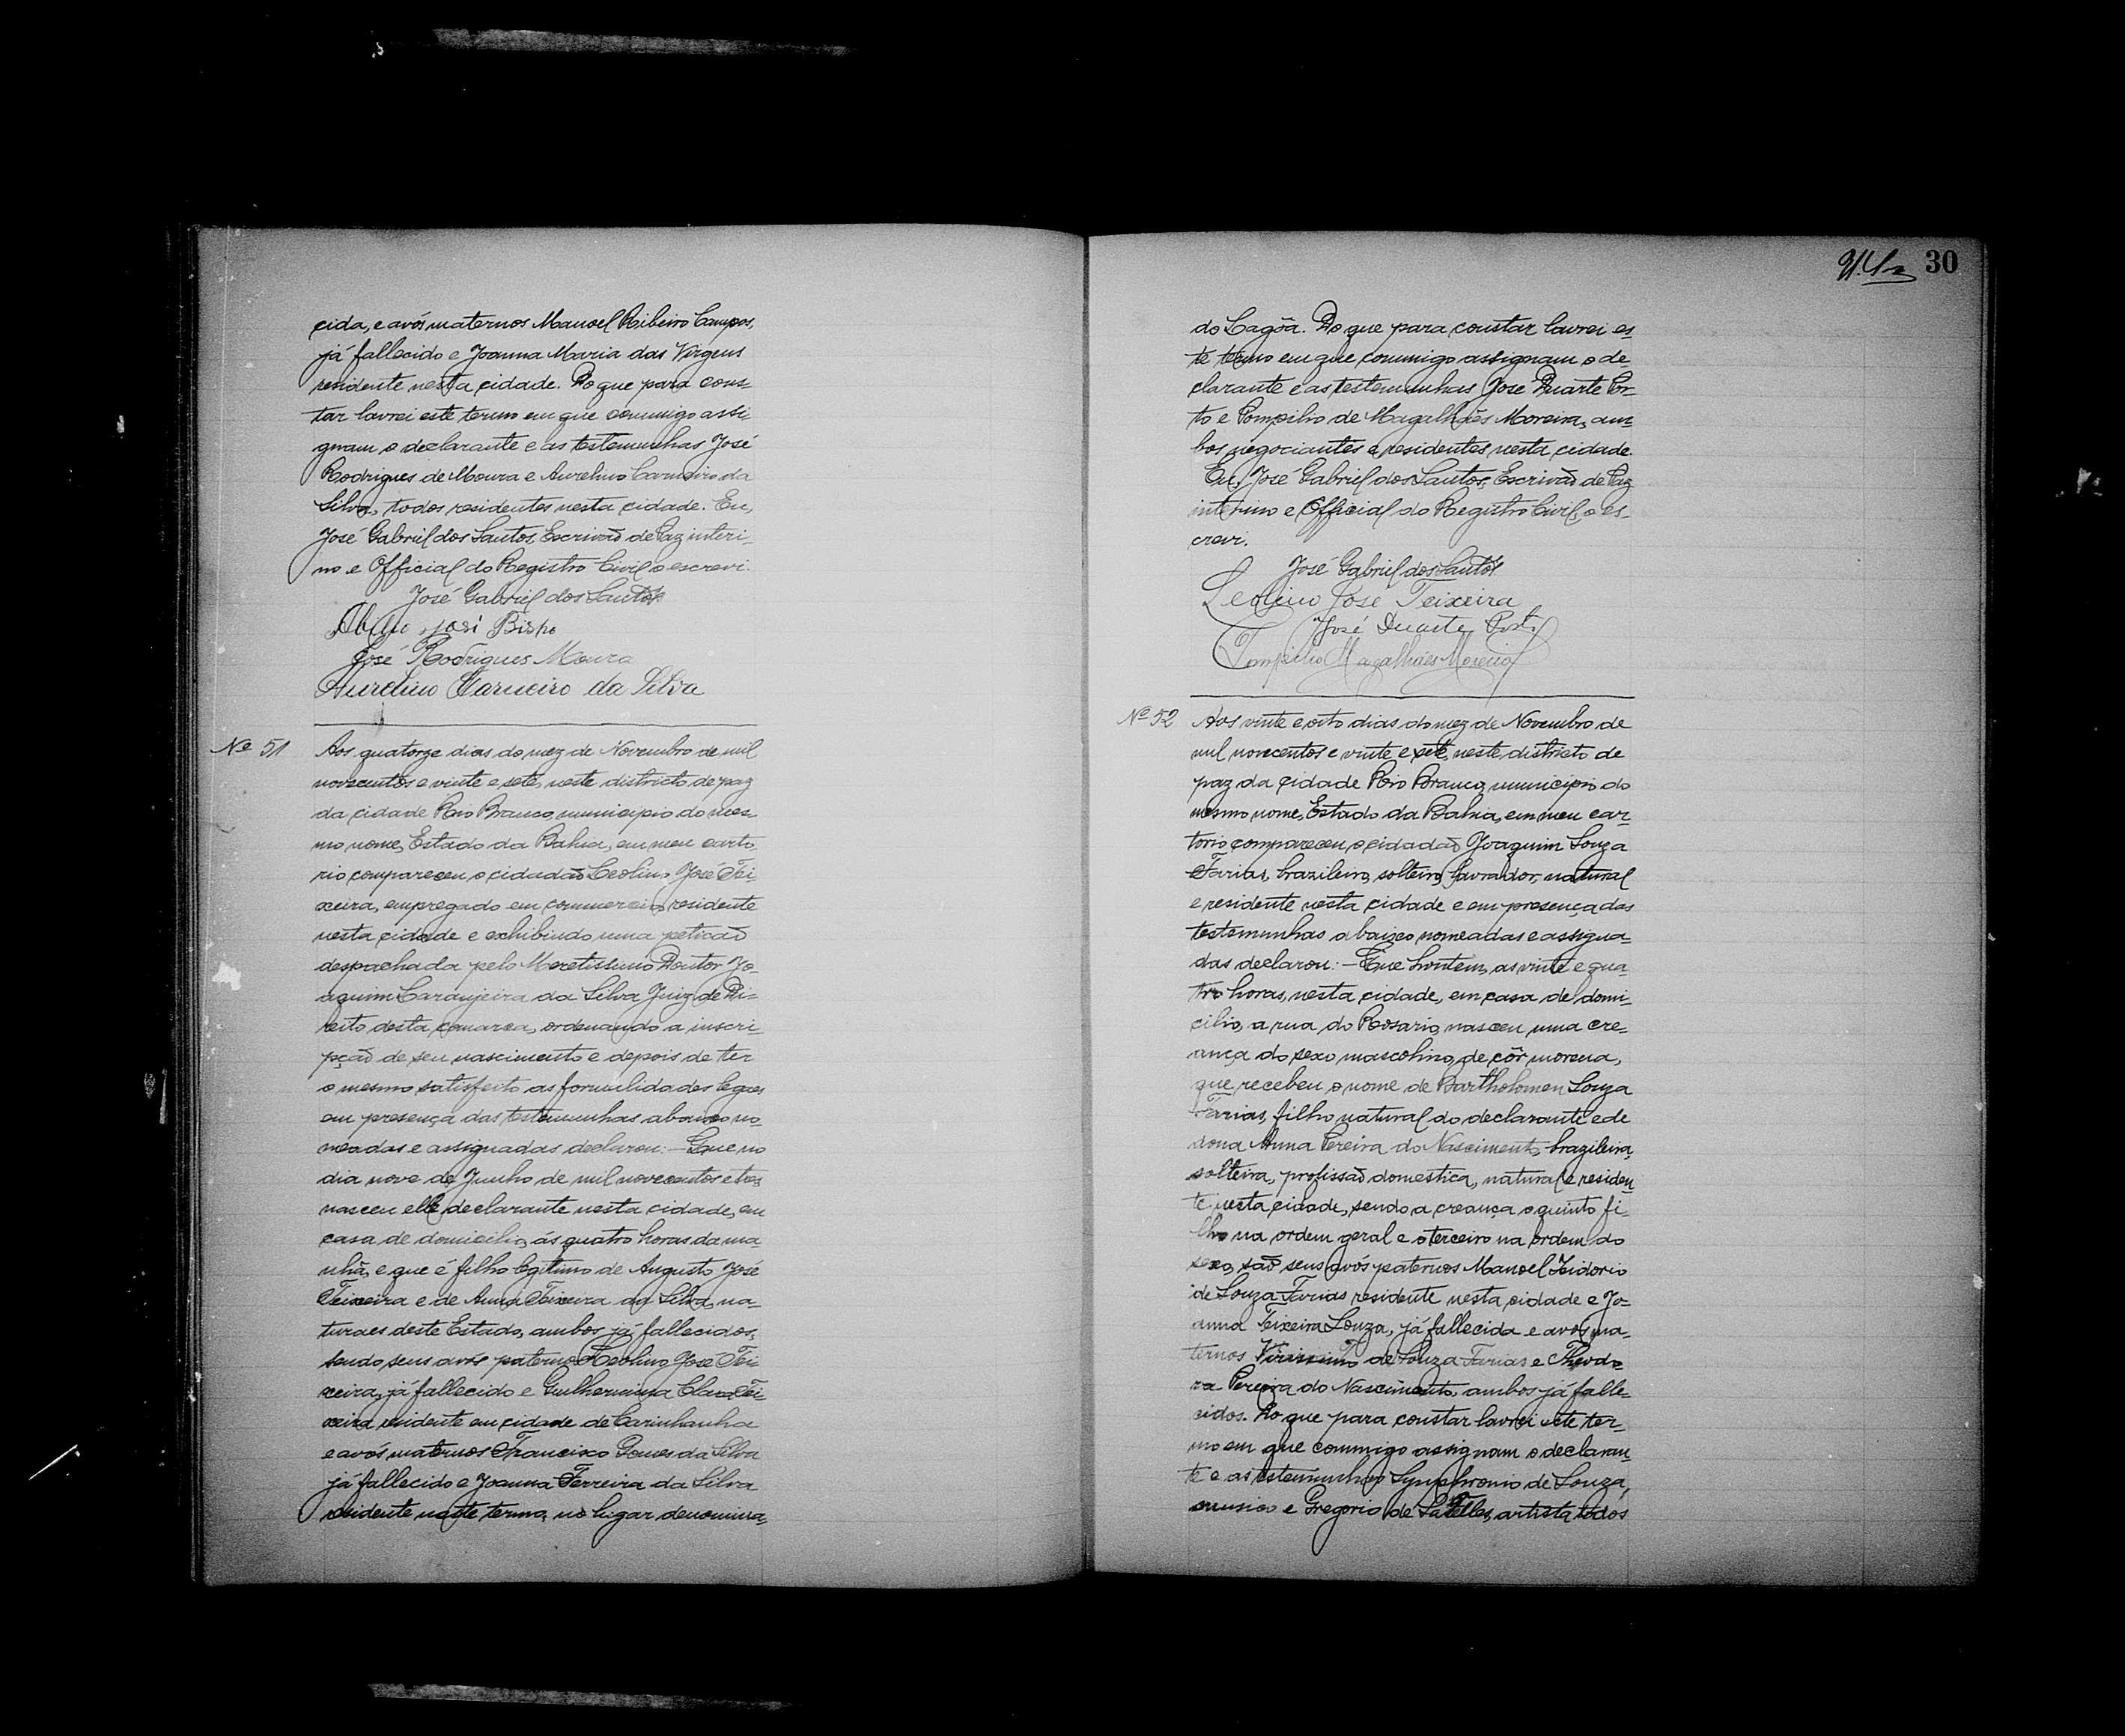 cida, e avós maternos Manoel Ribeiro Campos,
já fallecido e Joanna Maria das Virgens
residente nesta cidade. Do que para cons-
tar lavrei este termo em que commigo assi-
gnam o declarante e as testemunhas José
Rodrigues de Moura e Aurelino Carneiro da
Silva, todos residentes nesta cidade. Eu,
José Gabriel dos Santos, Escrivão de Paz interi-
no e Official do Registro Civil o escrevi.
José Gabriel dos Santos
José Bispo
José Rodrigues Moura
Aurelino Carneiro da Silva
Nº 51
Aos quatorze dias do mez de Novembro de mil
novecentos e vinte e sete, neste districto de paz
da cidade Rio Branco, municipio do mes-
mo nome, Estado da Bahia, em meu carto-
rio compareceu o cidadão Leolino José Tei-
xeira, empregado em commercio, residente
nesta cidade e exhibindo uma petição
despachada pelo Meretissimo Doutor Jo-
aquim Laranjeira da Silva Juiz de Di-
reito desta comarca, ordenando a inscri-
pção de seu nascimento e depois de ter
o mesmo satisfeito as formulidades legaes
em presença das testemunhas abaixo no-
meadas e assignadas declarou:- Que no
dia nove de Junho de mil novecentos e tres
nasceu elle declarante nesta cidade, em
casa de domicilio, ás quatro horas da ma-
nhã, e que é filho legitimo de Augusto José
Teixeira e de Anna Teixeira da Silva, na-
turaes deste Estado, ambos já fallecidos,
sendo seus avós paternos Leolino José Tei-
xeira, já fallecido e Guilhermina Clara Tei-
xeira residente em cidade de Carinhanha
e avós maternos Francisco Gomes da Silva
já fallecido e Joanna Ferreira da Silva
residente neste termo, no lugar denomina-
30
do Lagôa. Do que para constar lavrei es-
te termo em que commigo assignam o de-
clarante e as testemunhas José Duarte Por-
to e Pompilio de Magalhães Moreira, am-
bos negociantes e residentes nesta cidade.
Eu, José Gabriel dos Santos, Escrivão de Paz
interino e Official do Registro Civil, o es-
crevi.
José Gabriel dos Santos
Leolino José Teixeira
José Duarte Porto
Pompilio Magalhães Moreira
Nº 52
Aos vinte e oito dias do mez de Novembro de
mil novecentos e vinte e sete, neste districto de
paz da cidade Rio Branco, municipio do
mesmo nome, Estado da Bahia, em meu car-
torio compareceu o cidadão Joaquim Souza
Farias, brazileiro, solteiro, lavrador, natural
e residente nesta cidade e em presença das
testemunhas abaixo nomeadas e assigna-
das declarou:- Que hontem, as vinte e qua-
tro horas, nesta cidade, em casa de domi-
cilio, a rua do Rosario, nasceu uma cre-
ança do sexo mascolino, de côr morena,
que recebeu o nome de Bartholomeu Souza
Farias, filho natural do declarante e de
dona Anna Pereira do Nascimento, brazileira,
solteira, profissão domestica, natural e residen-
te nesta cidade, sendo a creança o quinto fi-
lho na ordem geral e o terceiro na ordem do
sexo, são seus avós paternos Manoel Izidorio
de Souza Farias residente nesta cidade e Jo-
anna Teixeira Souza, já fallecida e avós ma-
ternos Virissimo de Souza Farias e Theodo-
ra Pereira do Nascimento, ambos já falle-
cidos. Do que para constar lavrei este ter-
mo em que commigo assignam o declaran-
te e as testemunhas Synphronio de Souza,
musico e Gregorio de Satelles, artista, todos